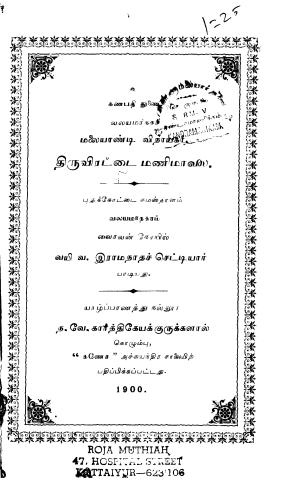 1=25
உ
கணபதி துணை
வலயமாநகர்
மலையாண்டி விநாயகர்
திருவிரட்டை மணிமாலை.
புதுக்கோட்டை சமஸ்தானம்
வலயமாநகரம்
வயிரவன் கோயில்
வயி வ. இராமநாதச் செட்டியார்
பாடியது.
யாழ்ப்பாணத்து நல்லூர்
த. வே. கார்த்திகேயக்குருக்களால்
கொழும்பு,
அச்சுயந்திர சாலையிற்
பதிப்பிக்கப்பட்டது.
1900.
ROJA MUTHIAH
47. HOSPITAL STREET
KOTTAIYUR—623106